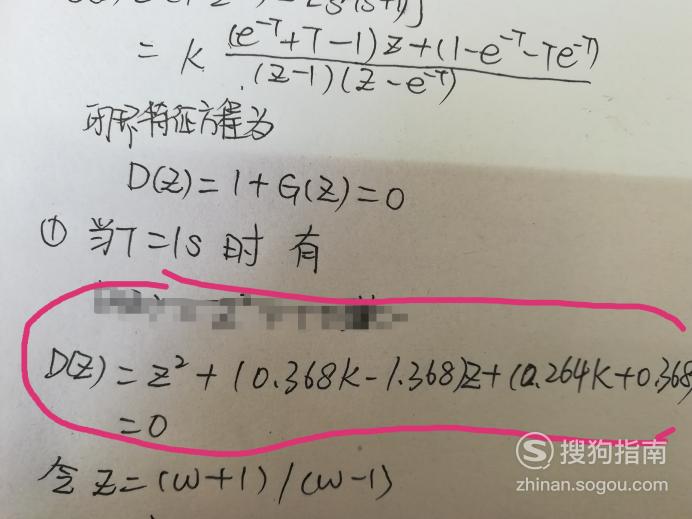 = K \frac{(e^{-T}+T-1)Z+(1-e^{-T}-Te^{-T})}{(Z-1)(Z-e^{-T})}
闭环特征方程为
D(Z)=1+G(Z)=0
① 当T=1s 时 有
D(Z) = Z² + (0.368K-1.368)Z+(0.264K+0.368
=0
令 Z=(W+1)/(W-1)
S 搜狗指南
zhinan.sogou.com